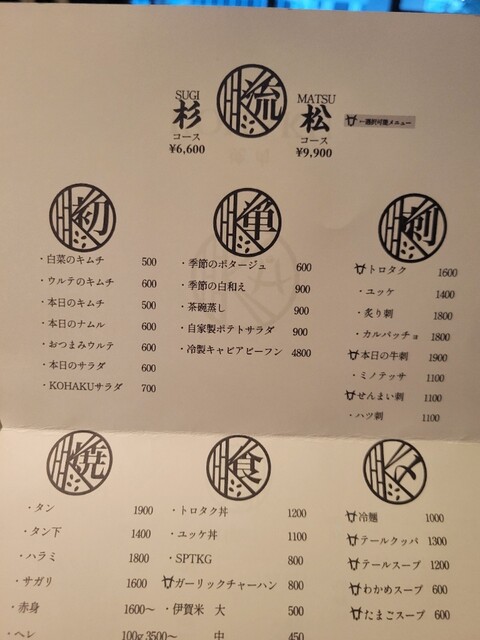 流
SUGI
杉
コース
¥6,600
MATSU
松
コース
¥9,900
←選択可能メニュー
初
・白菜のキムチ 500
・ウルテのキムチ 600
・本日のキムチ 500
・本日のナムル 600
・おつまみウルテ 600
・本日のサラダ 600
・KOHAKUサラダ 700
単
・季節のポタージュ 600
・季節の白和え 900
・茶碗蒸し 900
・自家製ポテトサラダ 900
・冷製キャビアビーフン 4800
刺
トロタク 1600
・ユッケ 1400
・炙り刺 1800
・カルパッチョ 1800
本日の牛刺 1900
・ミノテッサ 1100
せんまい刺 1100
・ハツ刺 1100
焼
・タン 1900
・タン下 1400
・ハラミ 1800
・サガリ 1600
・赤身 1600〜
・ヘレ 100g 3500〜
食
・トロタク丼 1200
・ユッケ丼 1100
・SPTKG 800
ガーリックチャーハン 800
・伊賀米 大 500
中 450
冷麺 1000
テールクッパ 1300
テールスープ 1200
わかめスープ 600
たまごスープ 600